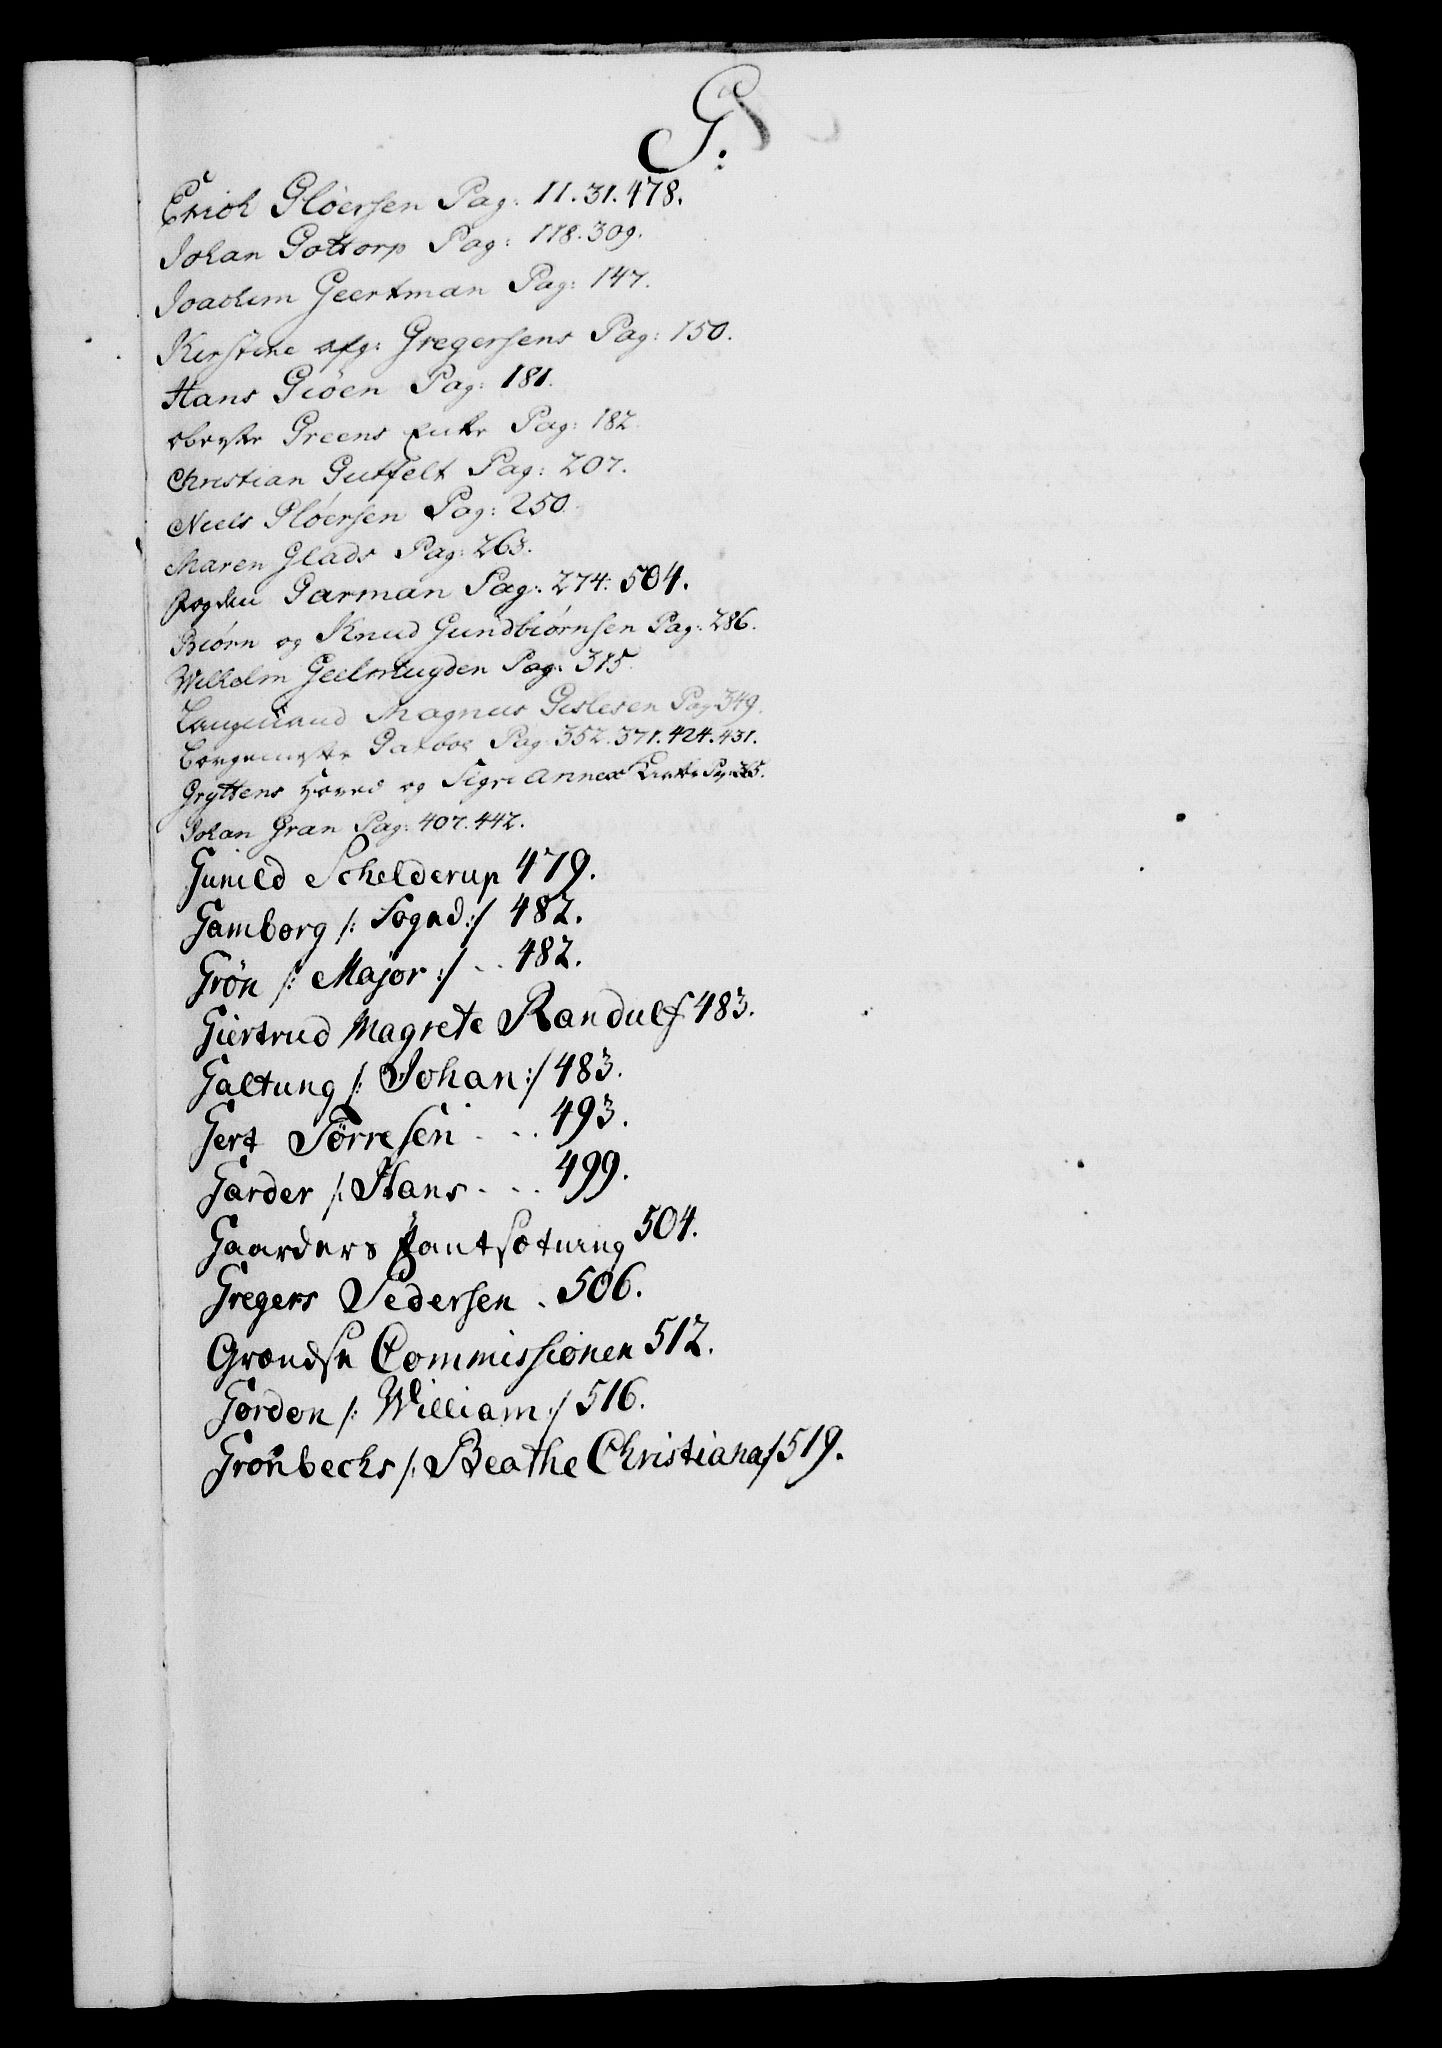 G:
Erich Gløersen Pag: 11. 31. 478.
Johan Gottorp Pag: 118. 309.
Joachim Geertman Pag: 147.
Kirstine afg: Gregersens Pag: 150.
Hans Giöen Pag: 181.
obrste Greens Enke Pag: 182.
Christian Gutfelt Pag: 207.
Niels Gløersen Pag: 250.
Maren Glads Pag: 263.
Fogden Garman Pag: 274: 504.
Biörn og Knud Gundbiørnsen Pag: 286.
Wilhelm Geelmuyden Pag: 315.
Laugmand Magnus Gislesen Pag 349.
Borgemester Garboe Pag: 352. 371. 424. 431.
Gryttens Hoved og Annex Kirke Pag
Johan Gran Pag: 407. 442.
Gunild Schelderup 479.
Gamborg /: Fogud :/ 482.
Grön /: Major :/ .. 482.
Giertrud Magrete Randulf 483.
Galtung /: Johan :/ 483.
Gert Törresen ... 493.
Garder /: Hans ... 499.
Gaarders Pantsætning 504.
Gregers Pedersen . 506.
Grændse Commissionen 512.
Gordon /: William :/ 516.
Grönbechs /: Beathe Christiana / 519.